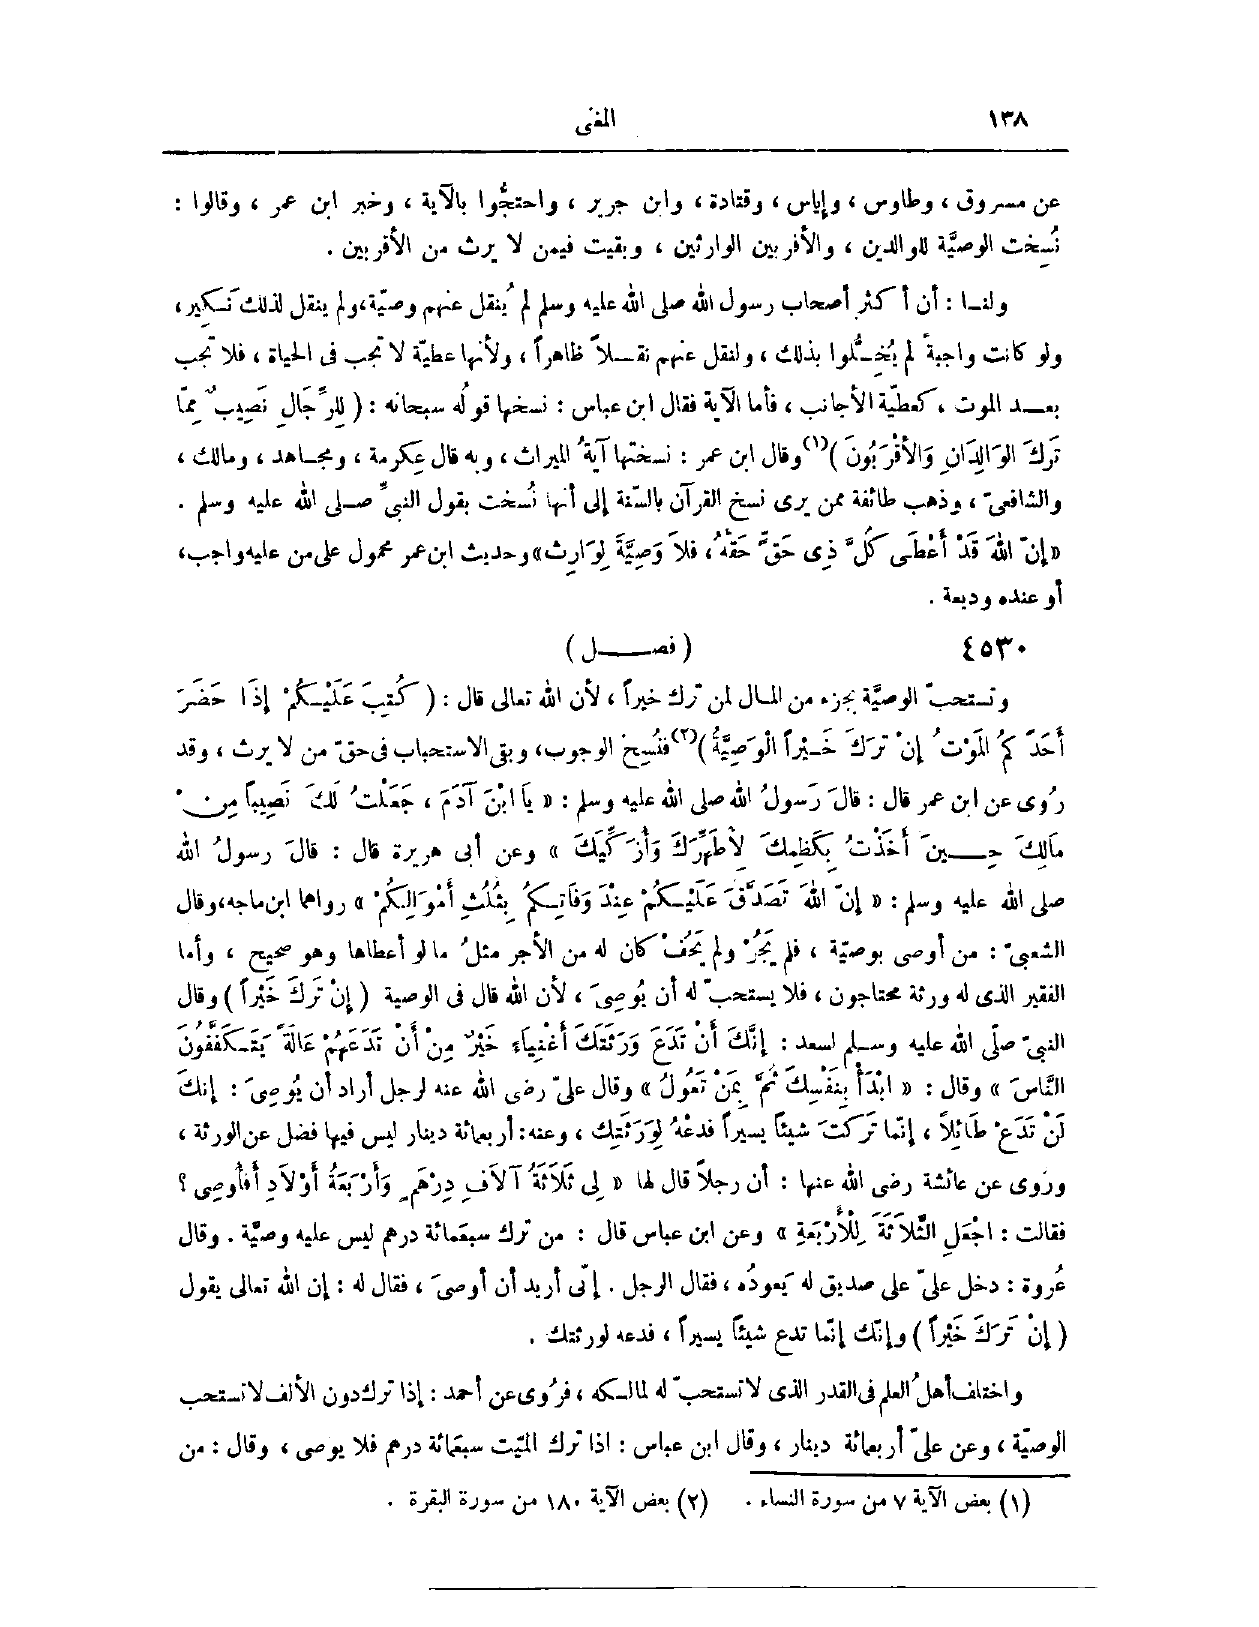 ١٣٨
المغنى
عن مسروق ، وطاوس ، وإياس ، وقتادة ، وابن جرير ، واحتجُّوا بالآية ، وخبر ابن عمر ، وقالوا :
نُسِخت الوصيَّة للوالدين ، والأقربين الوارثين ، وبقيت فيمن لا يرث من الأقربين .
ولنا : أن أكثر أصحاب رسول الله صلى الله عليه وسلم لم يُنقل عنهم وصيّة، ولم ينقل لذلك نَكِير،
ولو كانت واجبةً لم يُخِلُّوا بذلك ، ولنقل عنهم نقلاً ظاهراً ، ولأنها عطيّة لا تجب فى الحياة ، فلا تجب
بعد الموت ، كعطيّة الأجانب ، فأما الآية فقال ابن عباس : نسخها قولُه سبحانه : ( لِلرِّجَالِ نَصِيبٌ مِمّا
تَرَكَ الوَالِدَانِ وَالأَقْرَبُونَ )(١) وقال ابن عمر : نسختها آيةُ الميراث ، وبه قال عِكرمة ، ومجاهد ، ومالك ،
والشافعىّ ، وذهب طائفة ممن يرى نسخ القرآن بالسّنة إلى أنها نُسخت بقول النبىّ صلى الله عليه وسلم .
«إنّ اللهَ قَدْ أَعْطَى كُلَّ ذِى حَقٍّ حَقَّهُ، فَلاَ وَصِيَّةَ لِوَارِث» وحديث ابن عمر محمول على من عليه واجب،
أو عنده وديعة .
٤٥٣٠ ( فصل )
وتستحبّ الوصيَّة بجزء من المال لمن ترك خيراً ، لأن الله تعالى قال : ( كُتِبَ عَلَيْكُمْ إِذَا حَضَرَ
أَحَدَكُمُ المَوْتُ إِنْ تَرَكَ خَيْراً الْوَصِيَّةُ )(٢) فنُسِخ الوجوب، وبقى الاستحباب فى حقّ من لا يرث ، وقد
رُوى عن ابن عمر قال : قالَ رَسولُ الله صلى الله عليه وسلم : « يَا ابْنَ آدَمَ ، جَعَلْتُ لَكَ نَصِيباً مِنْ
مَالِكَ حِينَ أَخَذْتُ بِكَظِمِكَ لِأُطَهِّرَكَ وَأُزَكِّيَكَ » وعن أبى هريرة قال : قالَ رسولُ الله
صلى الله عليه وسلم : « إِنّ اللهَ تَصَدَّقَ عَلَيْكُمْ عِنْدَ وَفَاتِكُمُ بِثُلُثِ أَمْوَالِكُمْ » رواهما ابن ماجه، وقال
الشعبىّ : من أوصى بوصيّة ، فلم يَجُرْ ولم يَحُفْ كان له من الأجر مثلُ ما لو أعطاها وهو صحيح ، وأما
الفقير الذى له ورثة محتاجون ، فلا يستحبّ له أن يُوصِىَ ، لأن الله قال فى الوصية ( إِنْ تَرَكَ خَيْراً ) وقال
النبىّ صلّى الله عليه وسلم لسعد : إِنَّكَ أَنْ تَدَعَ وَرَثَتَكَ أَغْنِيَاءِ خَيْرٌ مِنْ أَنْ تَدَعَهُمْ عَالَةً يَتَكَفَّفُونَ
النَّاسَ » وقال : « ابْدَأْ بِنَفْسِكَ ثُمَّ بِمَنْ تَعُولُ » وقال علىّ رضى الله عنه لرجل أراد أن يُوصِىَ : إنكَ
لَنْ تَدَعَ طَائِلاً ، إنّما تَرَكتَ شيئاً يسيراً فدعْهُ لِوَرَثَتِك ، وعنه: أربعمائة دينار ليس فيها فضل عن الورثة ،
ورُوى عن عائشة رضى الله عنها : أن رجلاً قال لها « لِى ثَلَاثَةُ آلَافِ دِرْهَمٍ وَأَرْبَعَةُ أَوْلَادٍ أَفَأُوصِى ؟
فقالت : اجْعَلِ الثَّلَاثَةَ لِلْأَرْبَعَةِ » وعن ابن عباس قال : من ترك سبعمائة درهم ليس عليه وصيَّة . وقال
عُروة : دخل علىّ على صديق له يَعودُه ، فقال الرجل . إنّى أريد أن أوصىَ ، فقال له : إن الله تعالى يقول
( إِنْ تَرَكَ خَيْراً ) وإنّك إنّما تدع شيئاً يسيراً ، فدعه لورثتك .
واختلف أهلُ العلم فى القدر الذى لا تستحبّ له لمالكه ، فرُوى عن أحمد : إذا ترك دون الألف لا تستحب
الوصيّة ، وعن علىّ أربعمائة دينار ، وقال ابن عباس : اذا ترك الميّت سبعمائة درهم فلا يوصى ، وقال : من
(١) بعض الآية ٧ من سورة النساء . (٢) بعض الآية ١٨٠ من سورة البقرة .